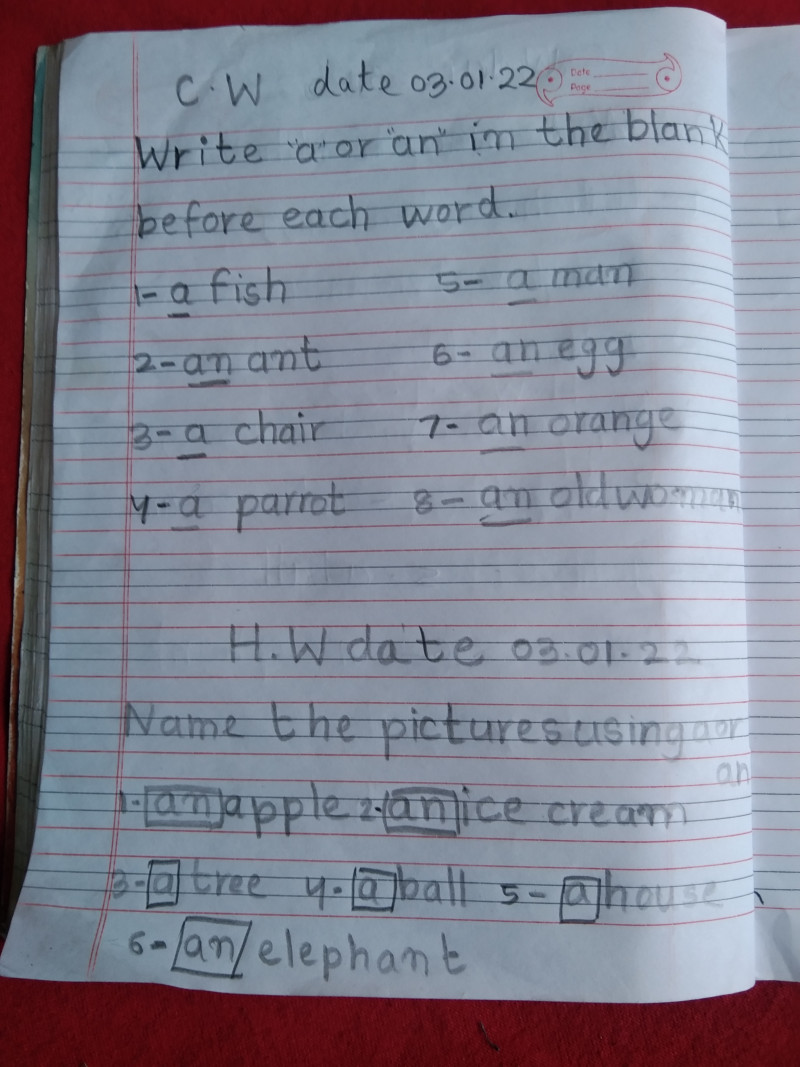 C.W date 03.01.22
Date
Page
Write "a" or "an" in the blank
before each word.
1- a fish 5- a man
2- an ant 6- an egg
3- a chair 7- an orange
4- a parrot 8- an old woman
H.W date 03.01.22
Name the pictures using a or
an
1- an apple 2- an ice cream
3- a tree 4- a ball 5- a house
6- an elephant